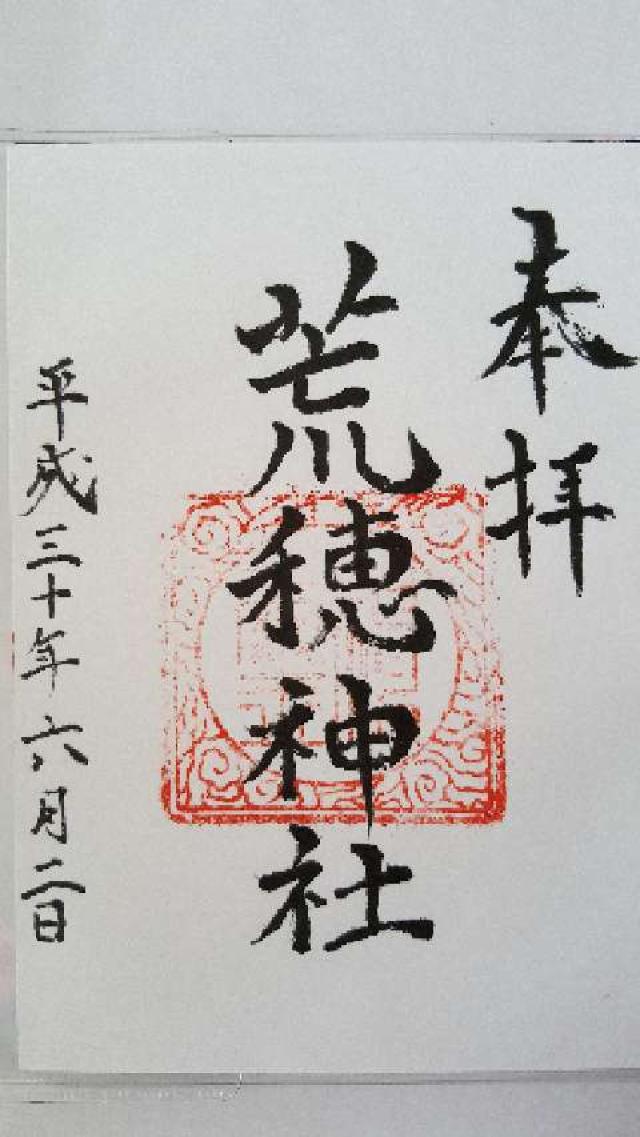 奉拝
荒穂神社
平成三十年六月二日